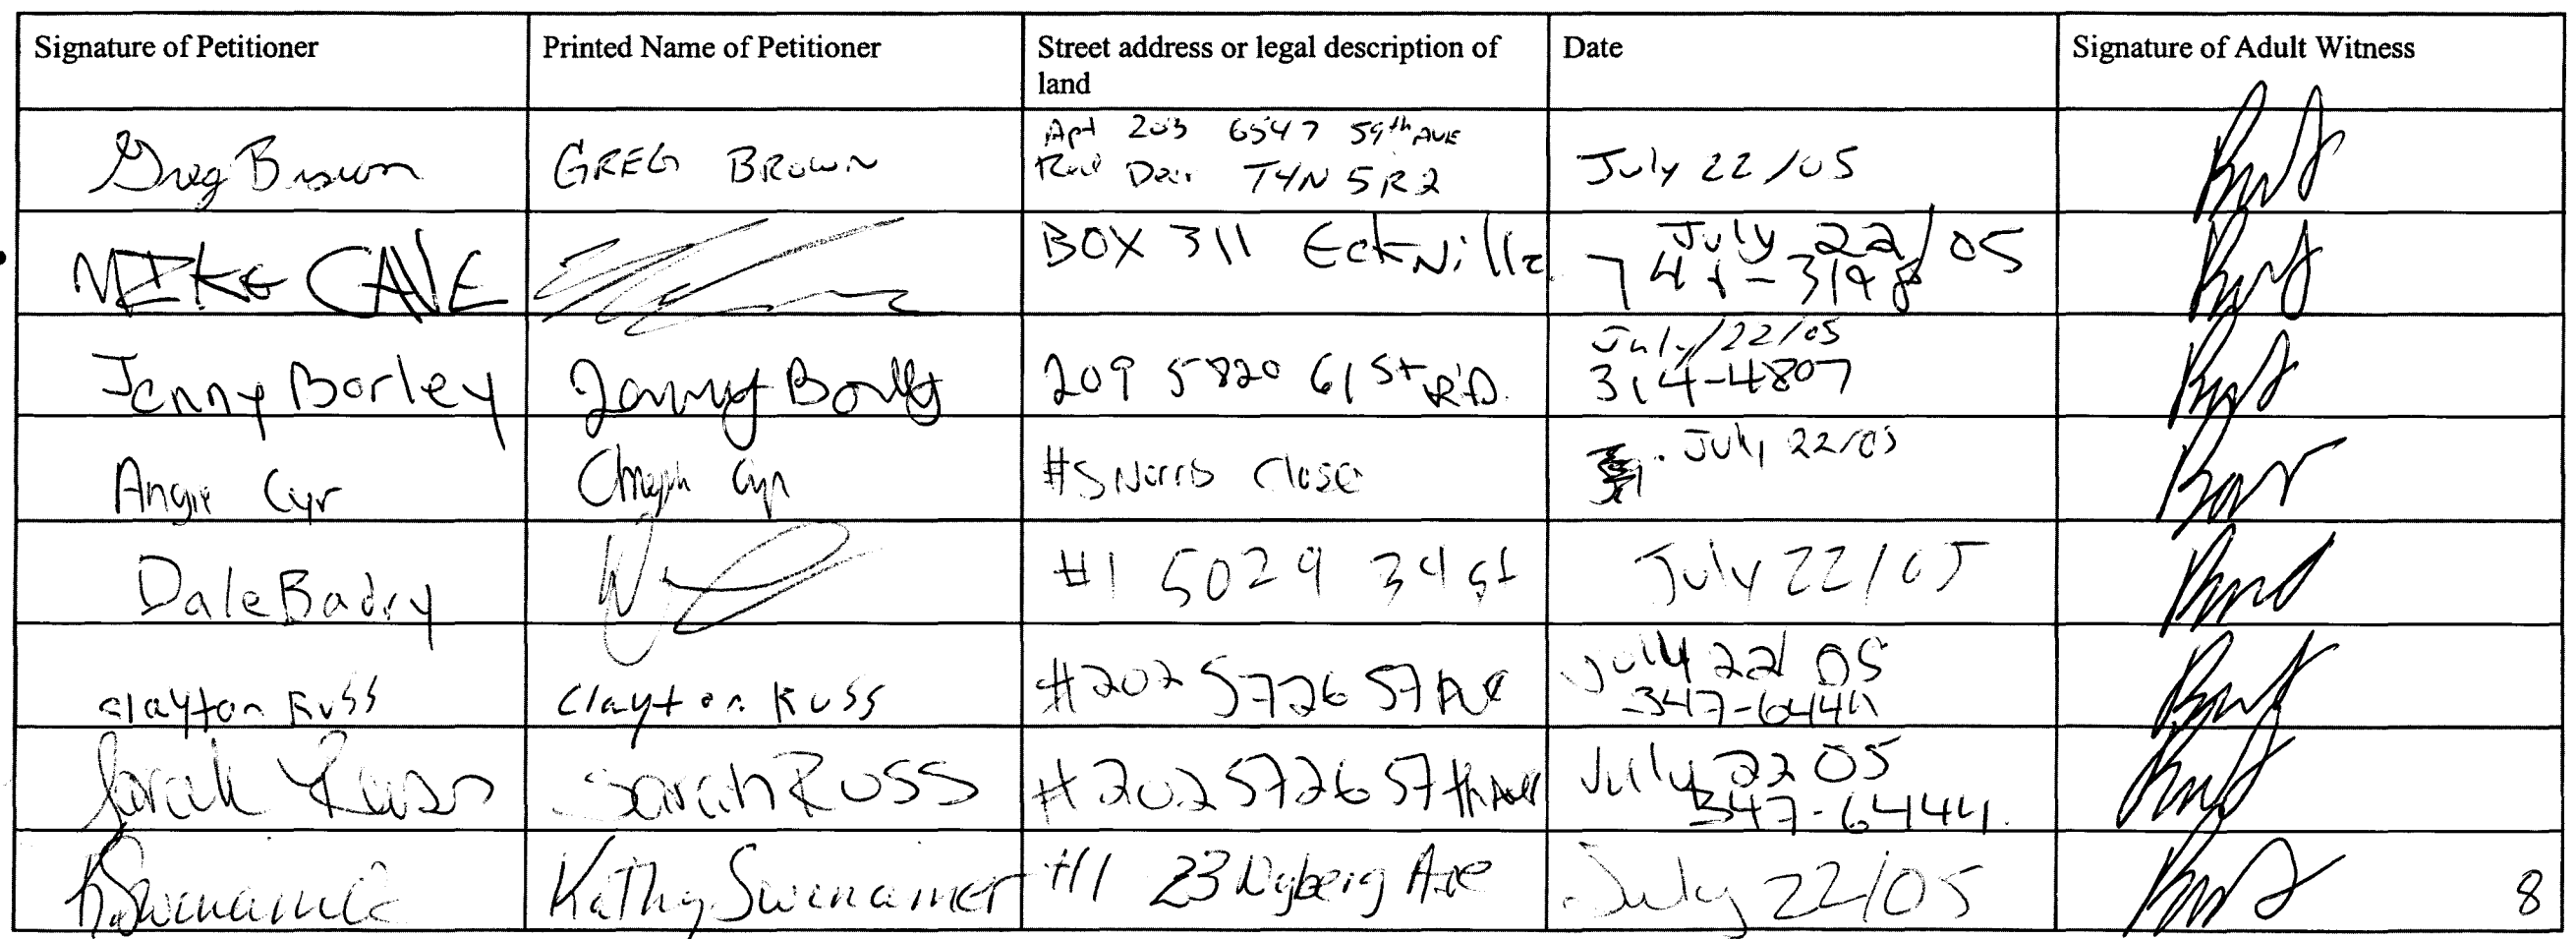 Signature of Petitioner
Printed Name of Petitioner
Street address or legal description of
land
Date
Signature of Adult Witness
Greg Brown
GREG BROWN
Apt 203 6547 59th AVE
Red Deer T4N 5R2
July 22/05
MIKE CAVE
BOX 311 Eckville
July 22/05
Jenny Borley
Jenny Borley
209 5820 61 St R.D.
July/22/05
314-4807
Angie Cyr
Cyr
#5 Norris Close
July 22/05
Dale Badry
#1 5029 34 st
July 22/05
Clayton Russ
Clayton Russ
#202 5726 57 Ave
July 22 05
347-6444
Sarah Russ
Sarah Russ
#202 5726 57th Ave
July 22 05
347-6444
K Swenamer
Kathy Swenamer
#1 23 Nyberg Ave
July 22/05
8